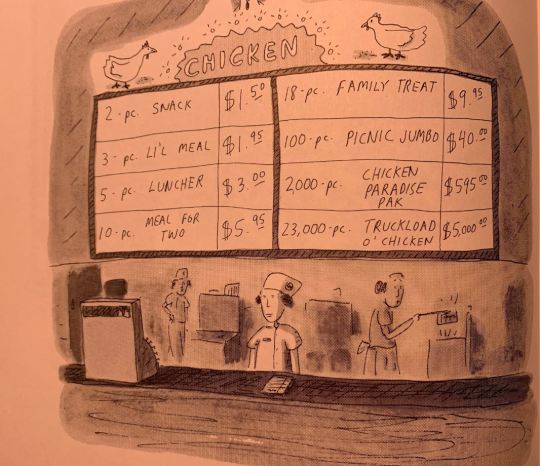 CHICKEN
2-pc. SNACK $1.50
3-pc. LI'L MEAL $1.95
5-pc. LUNCHER $3.00
10-pc. MEAL FOR
TWO $5.95
18-pc. FAMILY TREAT $9.95
100-pc. PICNIC JUMBO $40.00
2000-pc. CHICKEN
PARADISE
PAK $595.00
23,000-pc. TRUCKLOAD
O' CHICKEN $5,000.00